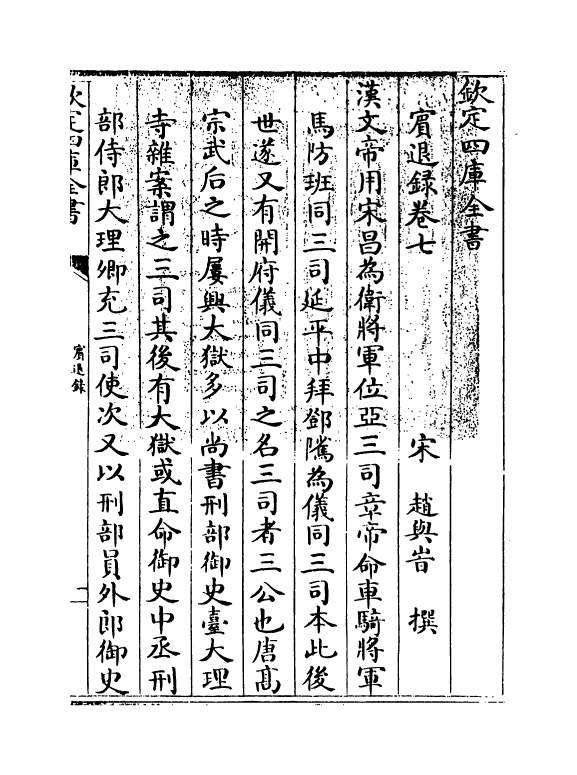 欽定四庫全書
賔退録卷七
宋 趙與旹 撰
漢文帝用宋昌為衛將軍位亞三司章帝命車騎將軍
馬防班同三司延平中拜鄧隲為儀同三司本此後
世遂又有開府儀同三司之名三司者三公也唐髙
宗武后之時屢興大獄多以尚書刑部御史臺大理
寺雜案謂之三司其後有大獄或直命御史中丞刑
部侍郎大理卿充三司使次又以刑部員外郎御史
欽定四庫全書
賔退録